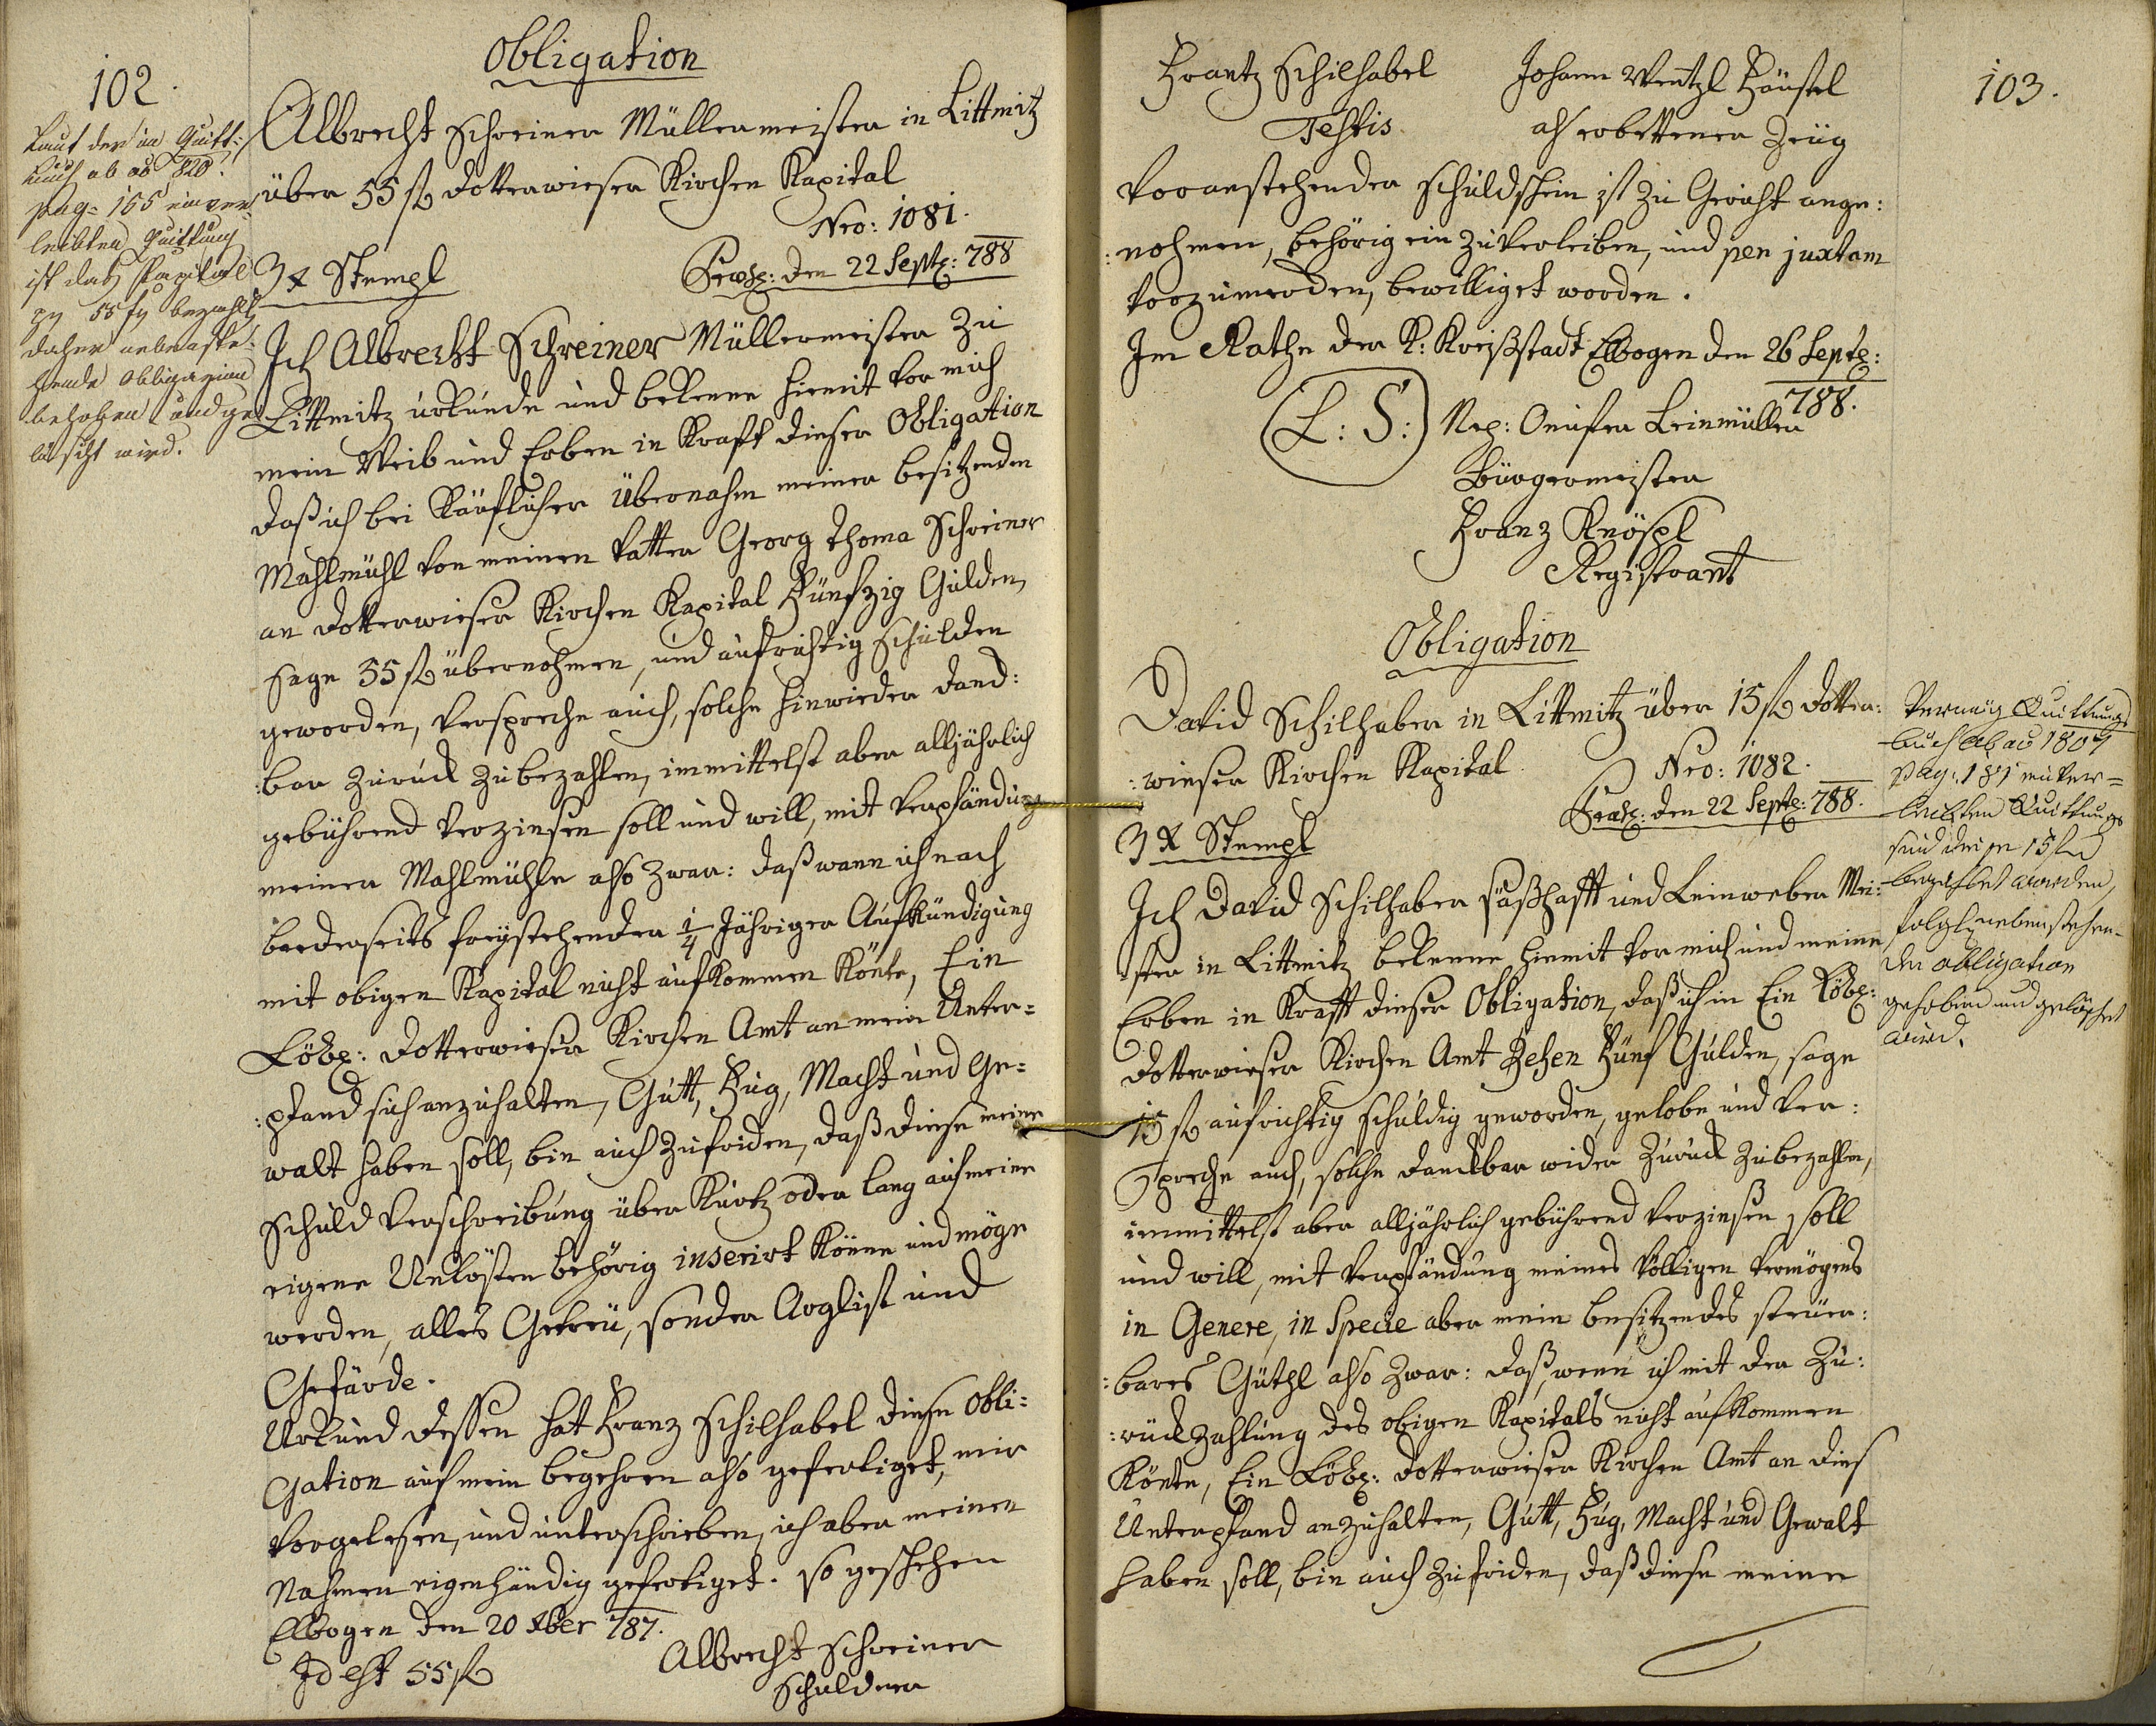 102.
Obligation
Albrecht Schreiner Müllermeister in Littmitz
über 55 fl Dotterwieser Kirchen Kapital
Nro: 1081.
3 x Stempl
Præs: den 22 Septe: 788
Laut der im Quitt:
buch ab ao 820.
pag: 155 einver
leibten Quittung
ist das Kapital
pr 55 fl bezahlt
daher nebenste
hende Obligation
behoben und ge
löscht wird.
Ich Albrecht Schreiner Müllermeister zu
Littmitz urkunde und bekenne hiemit vor mich
mein Weib und Erben in Kraft dieser Obligation
daß ich bei Käuflicher Übernahm meiner besitzenden
Mahlmühl von meinen Vatter Georg Thoma Schreiner
an Dotterwieser Kirchen Kapital Fünfzig Gulden,
sage 55 fl übernohmen, und aufrichtig schulden
geworden, verspreche auch, solche hinwieder danck:
:bar zuruck zubezahlen, immittelst aber alljährlich
gebührend verzinsen soll und will, mit Verpfändung
meiner Mahlmühle also zwar: daß wann ich nach
beederseits freystehender 1/4 Jähriger Aufkündigung
mit obigen Kapital nicht aufkommen könte, Ein
Löbl: Dotterwieser Kirchen Amt an mein Unter=
:pfand sich anzuhalten, Gutt, Fug, Macht und Ge=
walt haben soll, bin auch zufriden, daß diese meine
Schuld Verschreibung über Kurtz oder lang auf meine
eigene Unkösten behörig inserirt könne und möge
werden, alles Getreu, sonder Arglist und
Gefärde.
Urkund dessen hat Franz Schilhabel diese Obli:
gation auf mein begehren also gefertiget, mir
vorgelesen, und unterschrieben, ich aber meinen
Nahmen eigenhändig gefertiget. So geschehen
Elbogen den 20 xber 787.
Id est 55 fl
Albrecht Schreiner
Schuldner
103.
Frantz Schilhabel
Testis
Johann Wentzl Hänstl
als erbettener Zeüg
Voranstehender Schuldschein ist zu Gericht ange:
:nohmen, behörig ein zuverleiben, und per juxtam
vorzumerden, bewilliget worden.
Im Rathe der K: Kreißstadt Elbogen den 26 Septe:
788.
(L: S:) Nep: Leinmüller
Bürgermeister
Franz Knöspl
Registrant
Obligation
David Schilhaber in Littmitz über 15 fl Dotter:
:wieser Kirchen Kapital
Nro: 1082.
3 x Stempl
Præs: den 22 Septe: 788.
Vermög Quittungs
buch ab ao 1807
pag: 181 einver=
leibten Quittung
sind diese 15 fl
bezahlet worden,
folgl. nebenstehen=
de Obligation
gehoben und gelöschet
wird.
Ich David Schilhaber säßhafft und Leinweber Mei:
:ster in Littmitz bekenne hiemit vor mich und meine
Erben in Krafft dieser Obligation, daß ich in Ein Löbl:
Dotterwieser Kirchen Amt Zehen Fünf Gulden, sage
15 fl aufrichtig schuldig geworden, gelobe und ver:
Spreche auch, solche danckbar wider zuruck zubezahlen,
immittelst aber alljährlich gebührend verzinsen soll
und will, mit Verpfändung meines völligen Vermögens
in Genere, in Specie aber mein besitzendes steuer:
:bares Güthl also zwar: daß, wenn ich mit der Zu:
:ruckzahlung des obigen Kapitals nicht aufkommen
könte, Ein Löbl: Dotterwieser Kirchen Amt an dies
Unterpfand anzuhalten, Gutt, Fug, Macht und Gewalt
haben soll, bin auch zufriden, daß diese meine